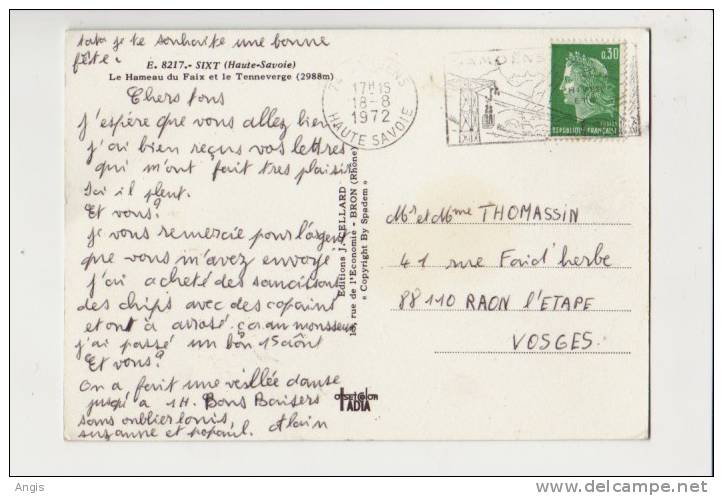 tata je te souhaite une bonne
fête.
E. 8217.- SIXT (Haute-Savoie)
Le Hameau du Faix et le Tenneverge (2988m)
Chers tous
j'espère que vous allez bien
j'ai bien reçus vos lettres
qui m'ont fait tres plaisir
Ici il pleut.
Et vous?
je vous remercie pour l'argent
que vous m'avez envoyé
j'ai acheté des saucissons
des chips avec des copains
et ont à arrosé ça au mousseux
j'ai passé un bon 15 août
Et vous?
On a fait une veillée danse
jusqu'a 1H. Bons Baisers
sans oublier louis,
suzanne et popaul. Alain
Editions J. CELLARD
18, rue de l'Economie - BRON (Rhône)
« Copyright By Spadem »
OFFSET COLOR
IADIA
17H15
18-8
1972
HAUTE SAVOIE
SAMOENS
0,30
REPUBLIQUE FRANÇAISE
Mr et Mme THOMASSIN
41 rue Faid'herbe
88110 RAON l'ETAPE
VOSGES.
Angis
www.delcampe.net